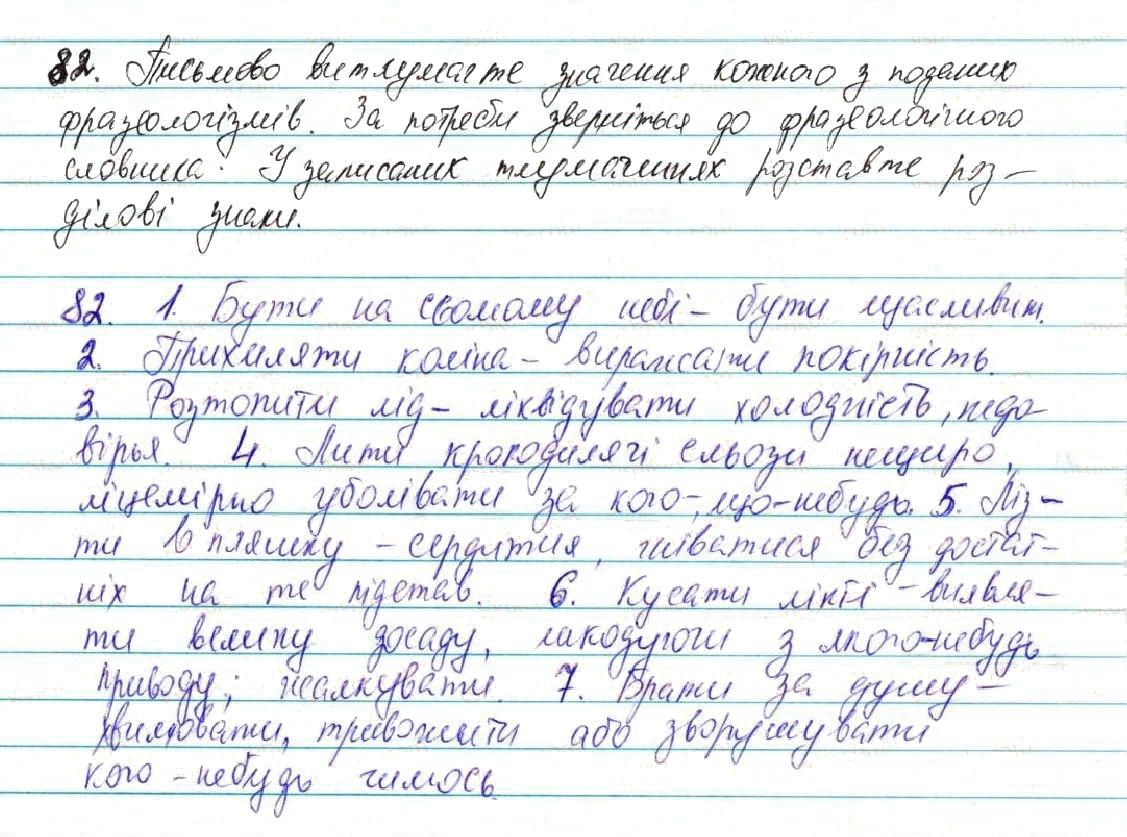 82. Письмово витлумачте значення кожного з поданих
фразеологізмів. За потреби зверніться до фразеологічного
словника. У записаних тлумаченнях розставте роз-
ділові знаки.
82. 1. Бути на сьомому небі - бути щасливим.
2. Прихиляти коліна - виражати покірність.
3. Розтопити лід - ліквідувати холодність, недо-
вірья. 4. Лити крокодилячі сльози нещиро,
лицемірно уболівати за кого-, що-небудь. 5. Ліз-
ти в пляшку - сердитися, гніватися без достат-
ніх на те підстав. 6. Кусати лікті - виявля-
ти велику досаду, з якого-небудь
приводу; жалкувати. 7. Брати за душу -
хвилювати, тривожити або зворушувати
кого-небудь чимось.